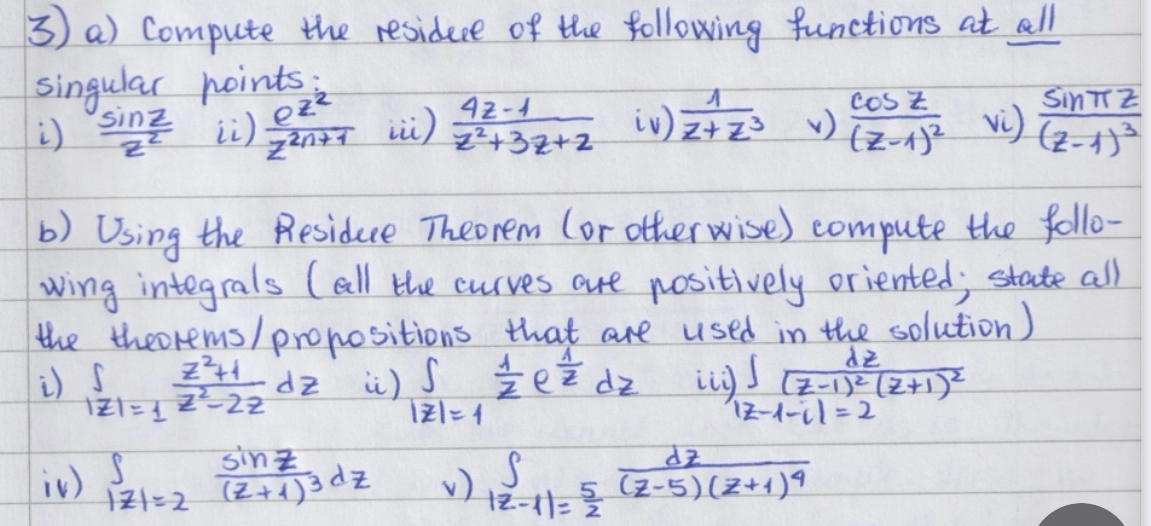 3) a) Compute the residue of the following functions at all
singular points:
i) sinz/z² ii) e^{z²}/z^{2n+1} iii) (4z-1)/(z²+3z+2) iv) 1/(z+z³) v) cos z/(z-1)² vi) sin πz/(z-1)³
b) Using the Residue Theorem (or otherwise) compute the follo-
wing integrals (all the curves are positively oriented; state all
the theorems/propositions that are used in the solution)
i) ∫_{|z|=1} (z²+1)/(z²-2z) dz ii) ∫_{|z|=1} 1/z e^{1/z} dz iii) ∫_{|z-1-i|=2} dz/((z-1)²(z+1)²)
iv) ∫_{|z|=2} sin z/(z+1)³ dz v) ∫_{|z-1|=5/2} dz/((z-5)(z+1)⁴)